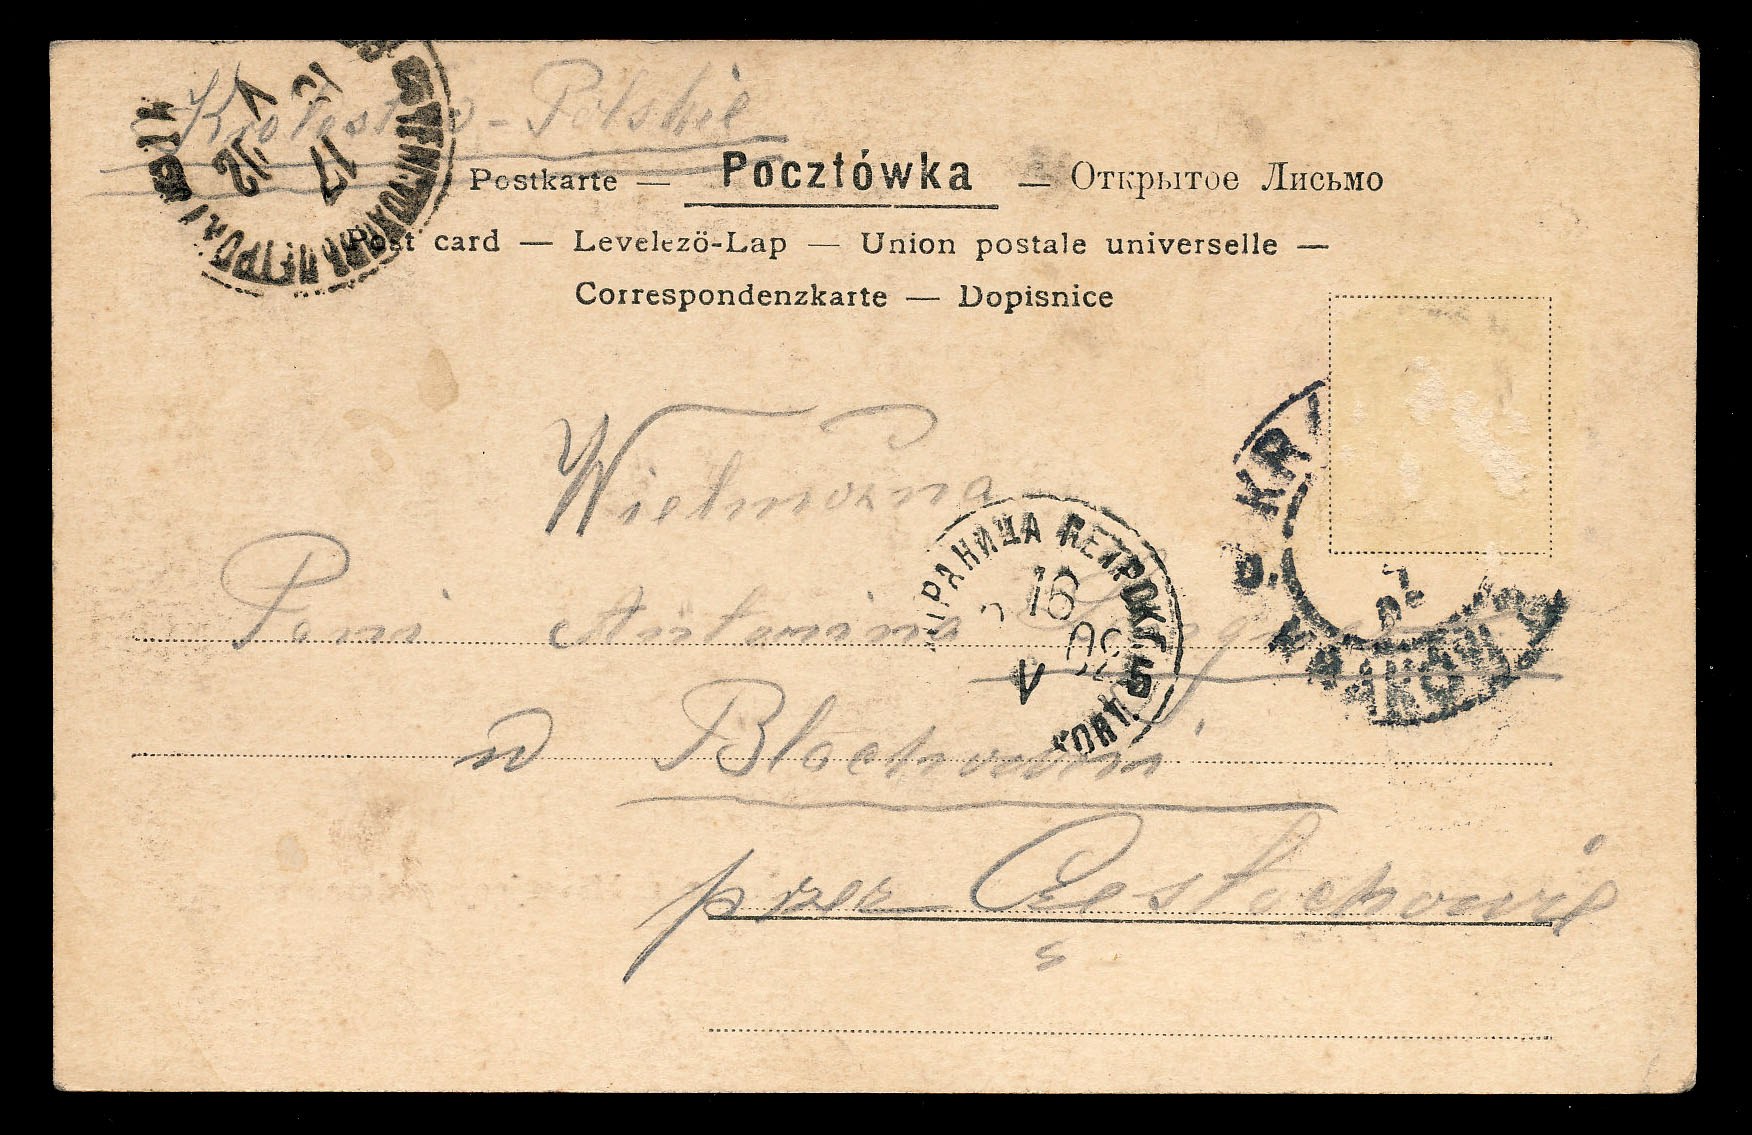 Królestwo - Polskie
Postkarte — Pocztówka — Открытое Письмо
Post card — Levelező-Lap — Union postale universelle —
Correspondenzkarte — Dopisnice
Wielmożna
Pani Antonina
w Blachowni
przez Częstochowę
ГРАНИЦА ПЕТРОК
16
V 02
17
V
KRAKÓW